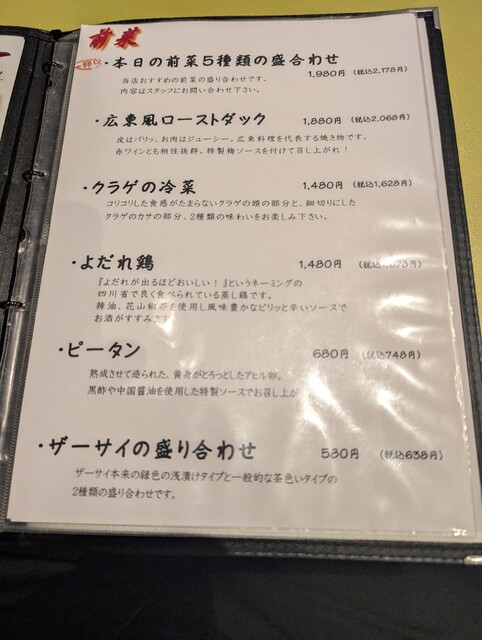 前菜
・本日の前菜5種類の盛合わせ
1,980円 (税込2,178円)
当店おすすめの前菜の盛り合わせです。
内容はスタッフにお問い合わせ下さい。
・広東風ローストダック
1,880円 (税込2,068円)
皮はパリッ、お肉はジューシー。広東料理を代表する焼き物です。
赤ワインとも相性抜群。特製梅ソースを付けて召し上がれ！
・クラゲの冷菜 1,480円 (税込1,628円)
コリコリした食感がたまらないクラゲの頭の部分と、細切りにした
クラゲのカサの部分、2種類の味わいをお楽しみ下さい。
・よだれ鶏 1,480円 (税込
『よだれが出るほどおいしい！』というネーミングの
四川省で良く食べられている蒸し鶏です。
辣油、花山椒等を使用し風味豊かなピリッと辛いソースで
お酒がすすみます
・ピータン 680円 (税込748円)
熟成させて造られた、黄身がとろっとしたアヒル卵。
黒酢や中国醤油を使用した特製ソースでお召し上が
・ザーサイの盛り合わせ 580円 (税込638円)
ザーサイ本来の緑色の浅漬けタイプと一般的な茶色いタイプの
2種類の盛り合わせです。